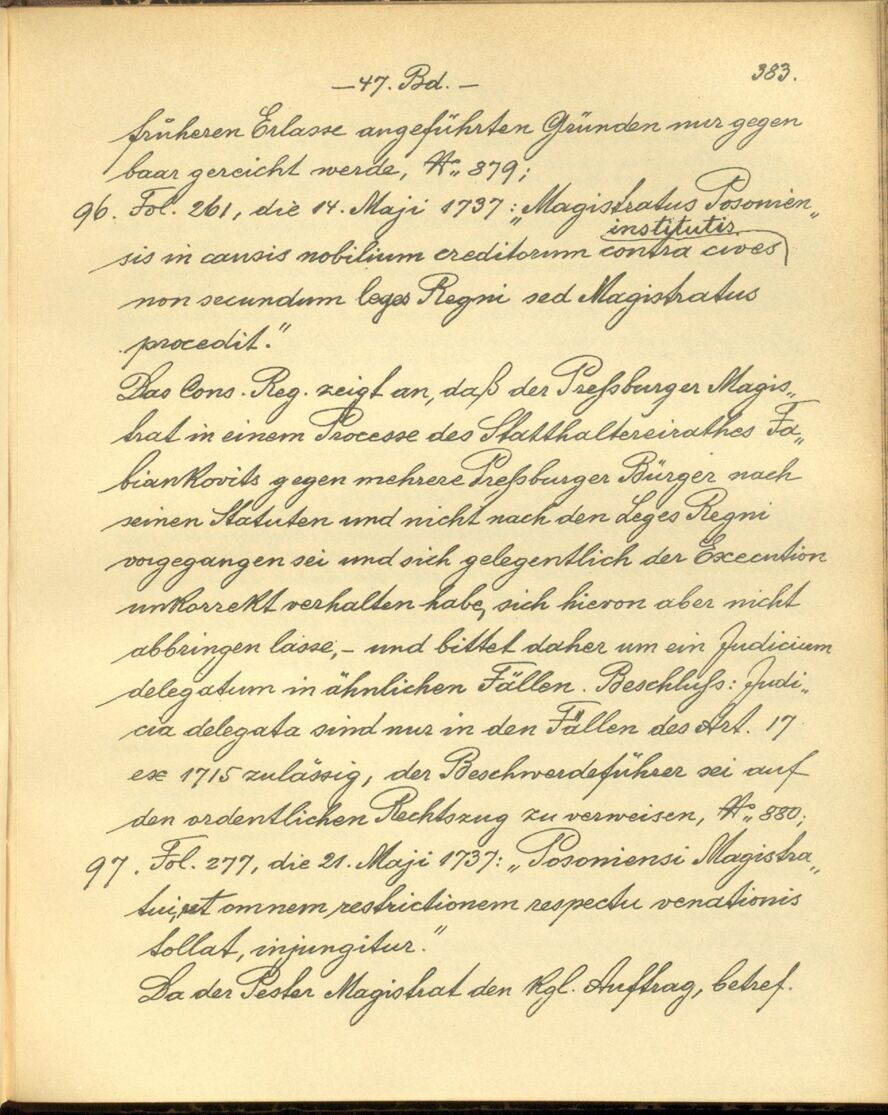 — 47. Bd. —
383.
früheren Erlasse angeführten Gründen nur gegen
baar gereicht werde, N„ 879;
96. Fol. 261, die 14. Maji 1737: „Magistratus Posonien„
institutis
sis in causis nobilium creditorum contra cives
non secundum leges Regni sed Magistratus
procedit.“
Das Cons. Reg. zeigt an, daß der Preßburger Magis„
trat in einem Processe des Statthaltereirathes Fa„
biankovits gegen mehrere Preßburger Bürger nach
seinen Statuten und nicht nach den Leges Regni
vorgegangen sei und sich gelegentlich der Execution
unkorrekt verhalten habe, sich hievon aber nicht
abbringen lasse, – und bittet daher um ein Judicium
delegatum in ähnlichen Fällen. Beschluß: Judi„
cia delegata sind nur in den Fällen des Art. 17
ex 1715 zulässig, der Beschwerdeführer sei auf
den ordentlichen Rechtszug zu verweisen, N„ 880;
97. Fol. 277, die 21. Maji 1737: „Posoniensi Magistra„
tui, ut omnem restrictionem respectu venationis
tollat, injungitur.“
Da der Pester Magistrat den kgl. Auftrag, betref.